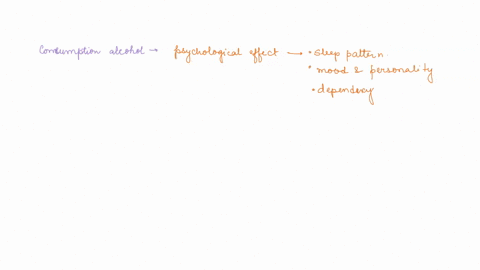 Consumption alcohol → psychological effect → • sleep pattern.
• mood & personality
• dependecy